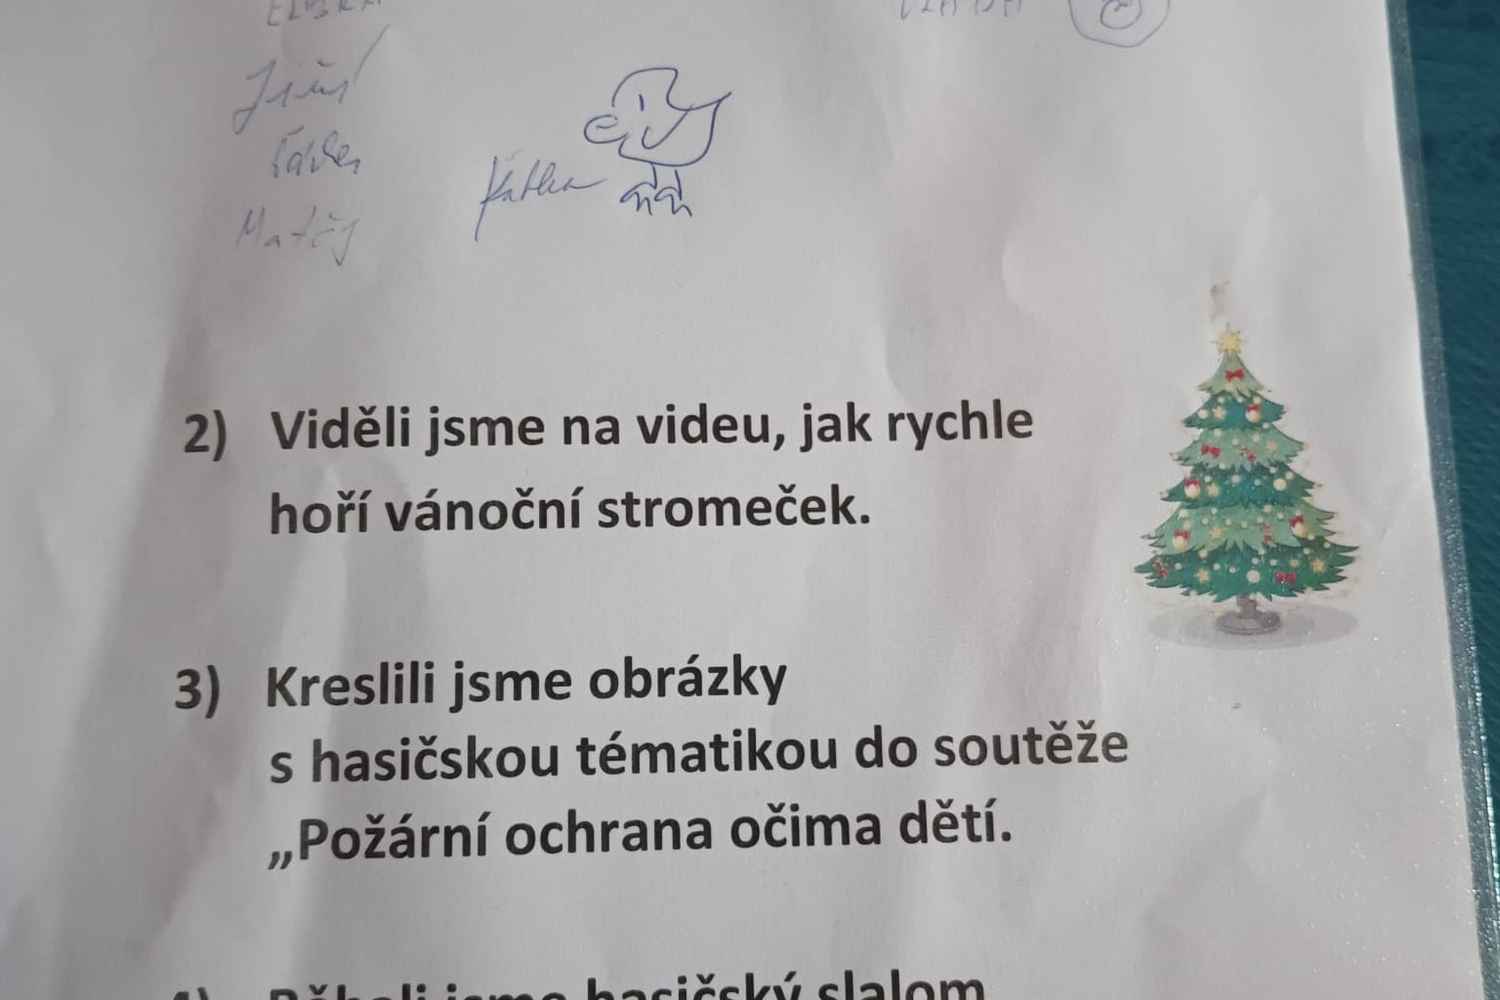 Jiří
Matěj
Katka
2) Viděli jsme na videu, jak rychle
hoří vánoční stromeček.
3) Kreslili jsme obrázky
s hasičskou tématikou do soutěže
„Požární ochrana očima dětí.
4) Běhali jsme hasičský slalom